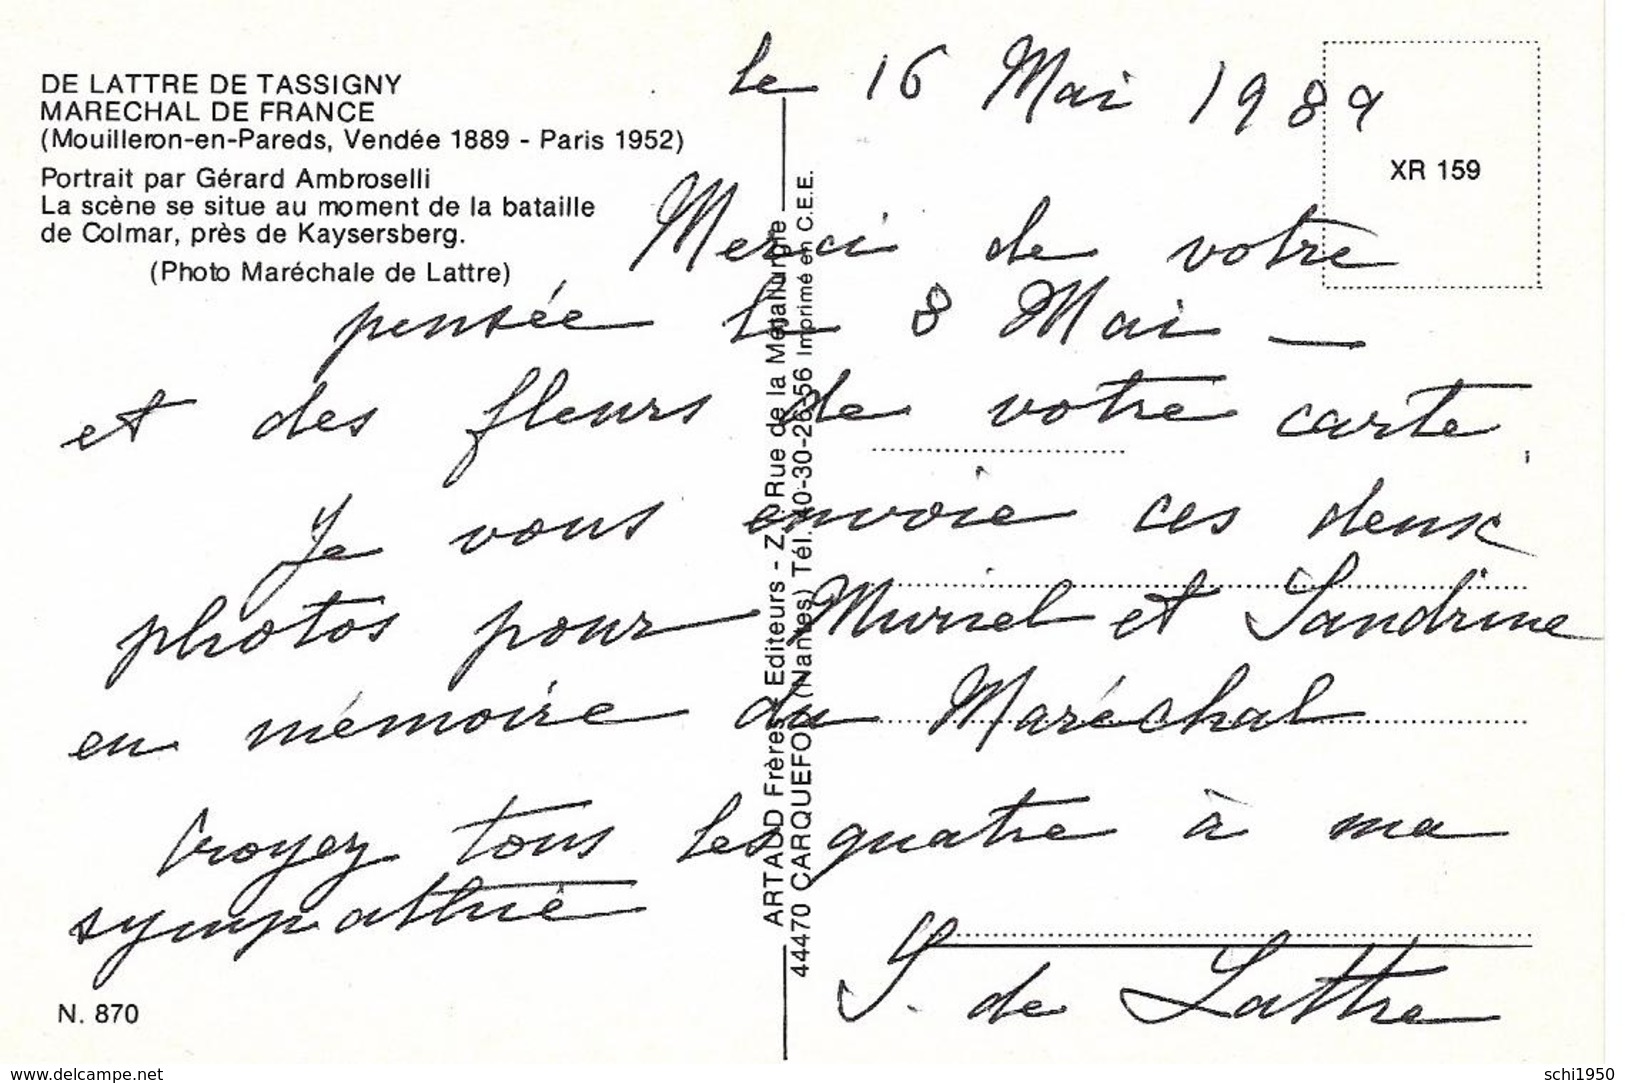 DE LATTRE DE TASSIGNY
MARECHAL DE FRANCE
(Mouilleron-en-Pareds, Vendée 1889 - Paris 1952)
Portrait par Gérard Ambroselli
La scène se situe au moment de la bataille
de Colmar, près de Kaysersberg.
(Photo Maréchale de Lattre)
le 16 Mai 1989
XR 159
Merci de votre
pensée le 8 Mai —
et des fleurs de votre carte
Je vous envoie ces deux
photos pour Muriel et Sandrine
en mémoire du Maréchal
Croyez tous les quatre à ma
sympathie
S. de Lattre
ARTAUD Frères Editeurs - Z. Rue de la Métallurgie
44470 CARQUEFOU (Nantes) Tél. 40-30-26-56 Imprimé en C.E.E.
N. 870
delcampe.net
schi1950